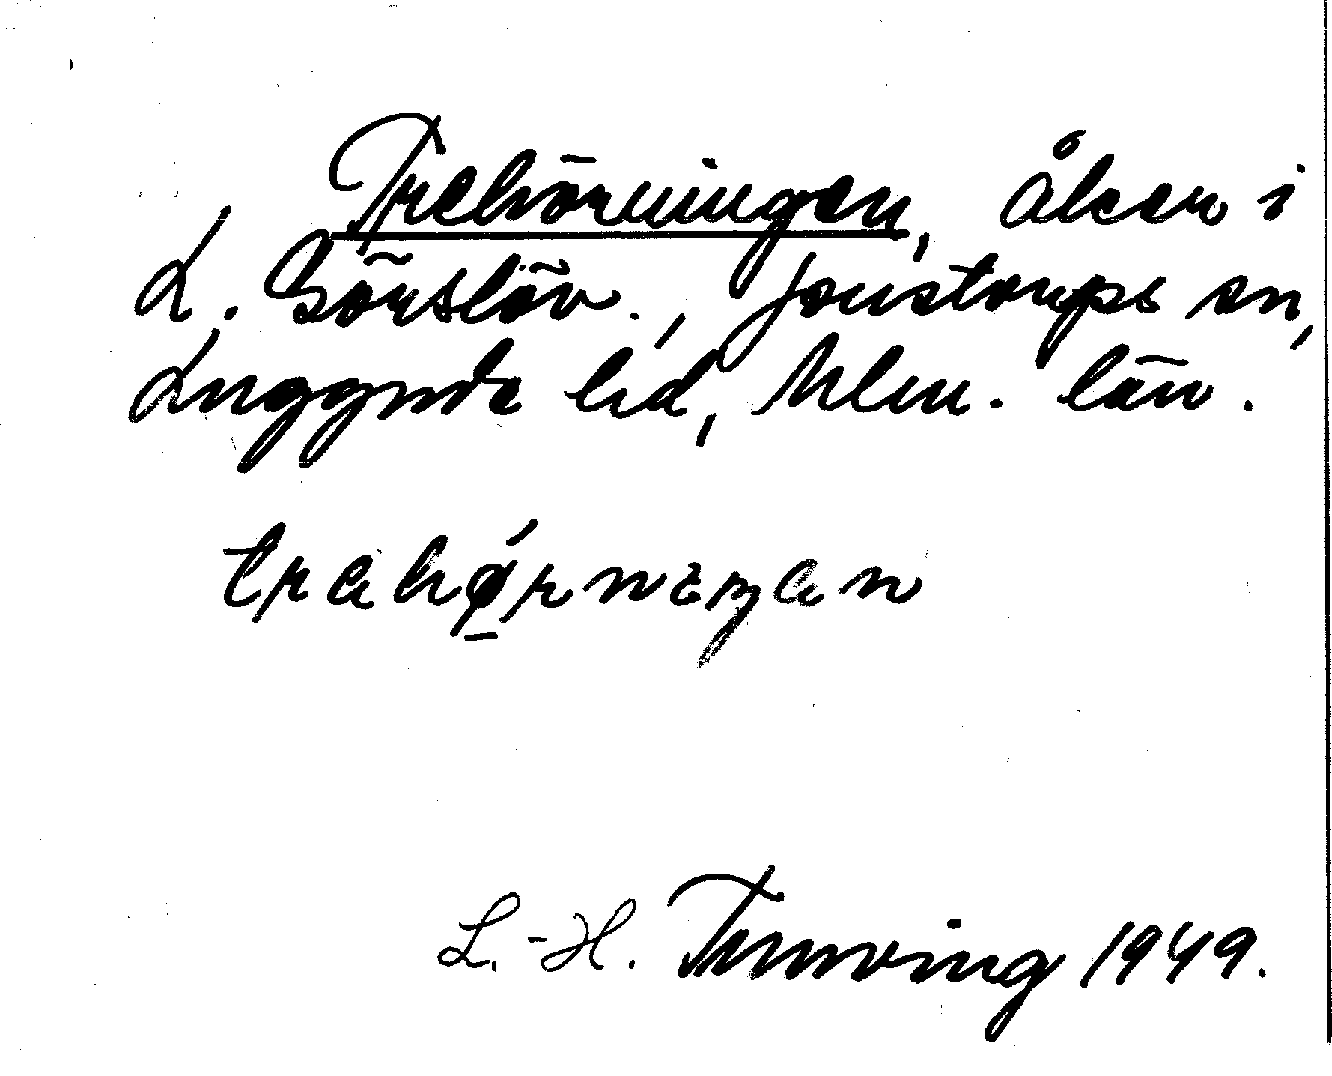 Trehörningen, åker i
L. Görslöv., Jonstorps sn,
Luggude hd, Mlm. län.
trehǿrnιŋen
L.-H. Tunving 1949.